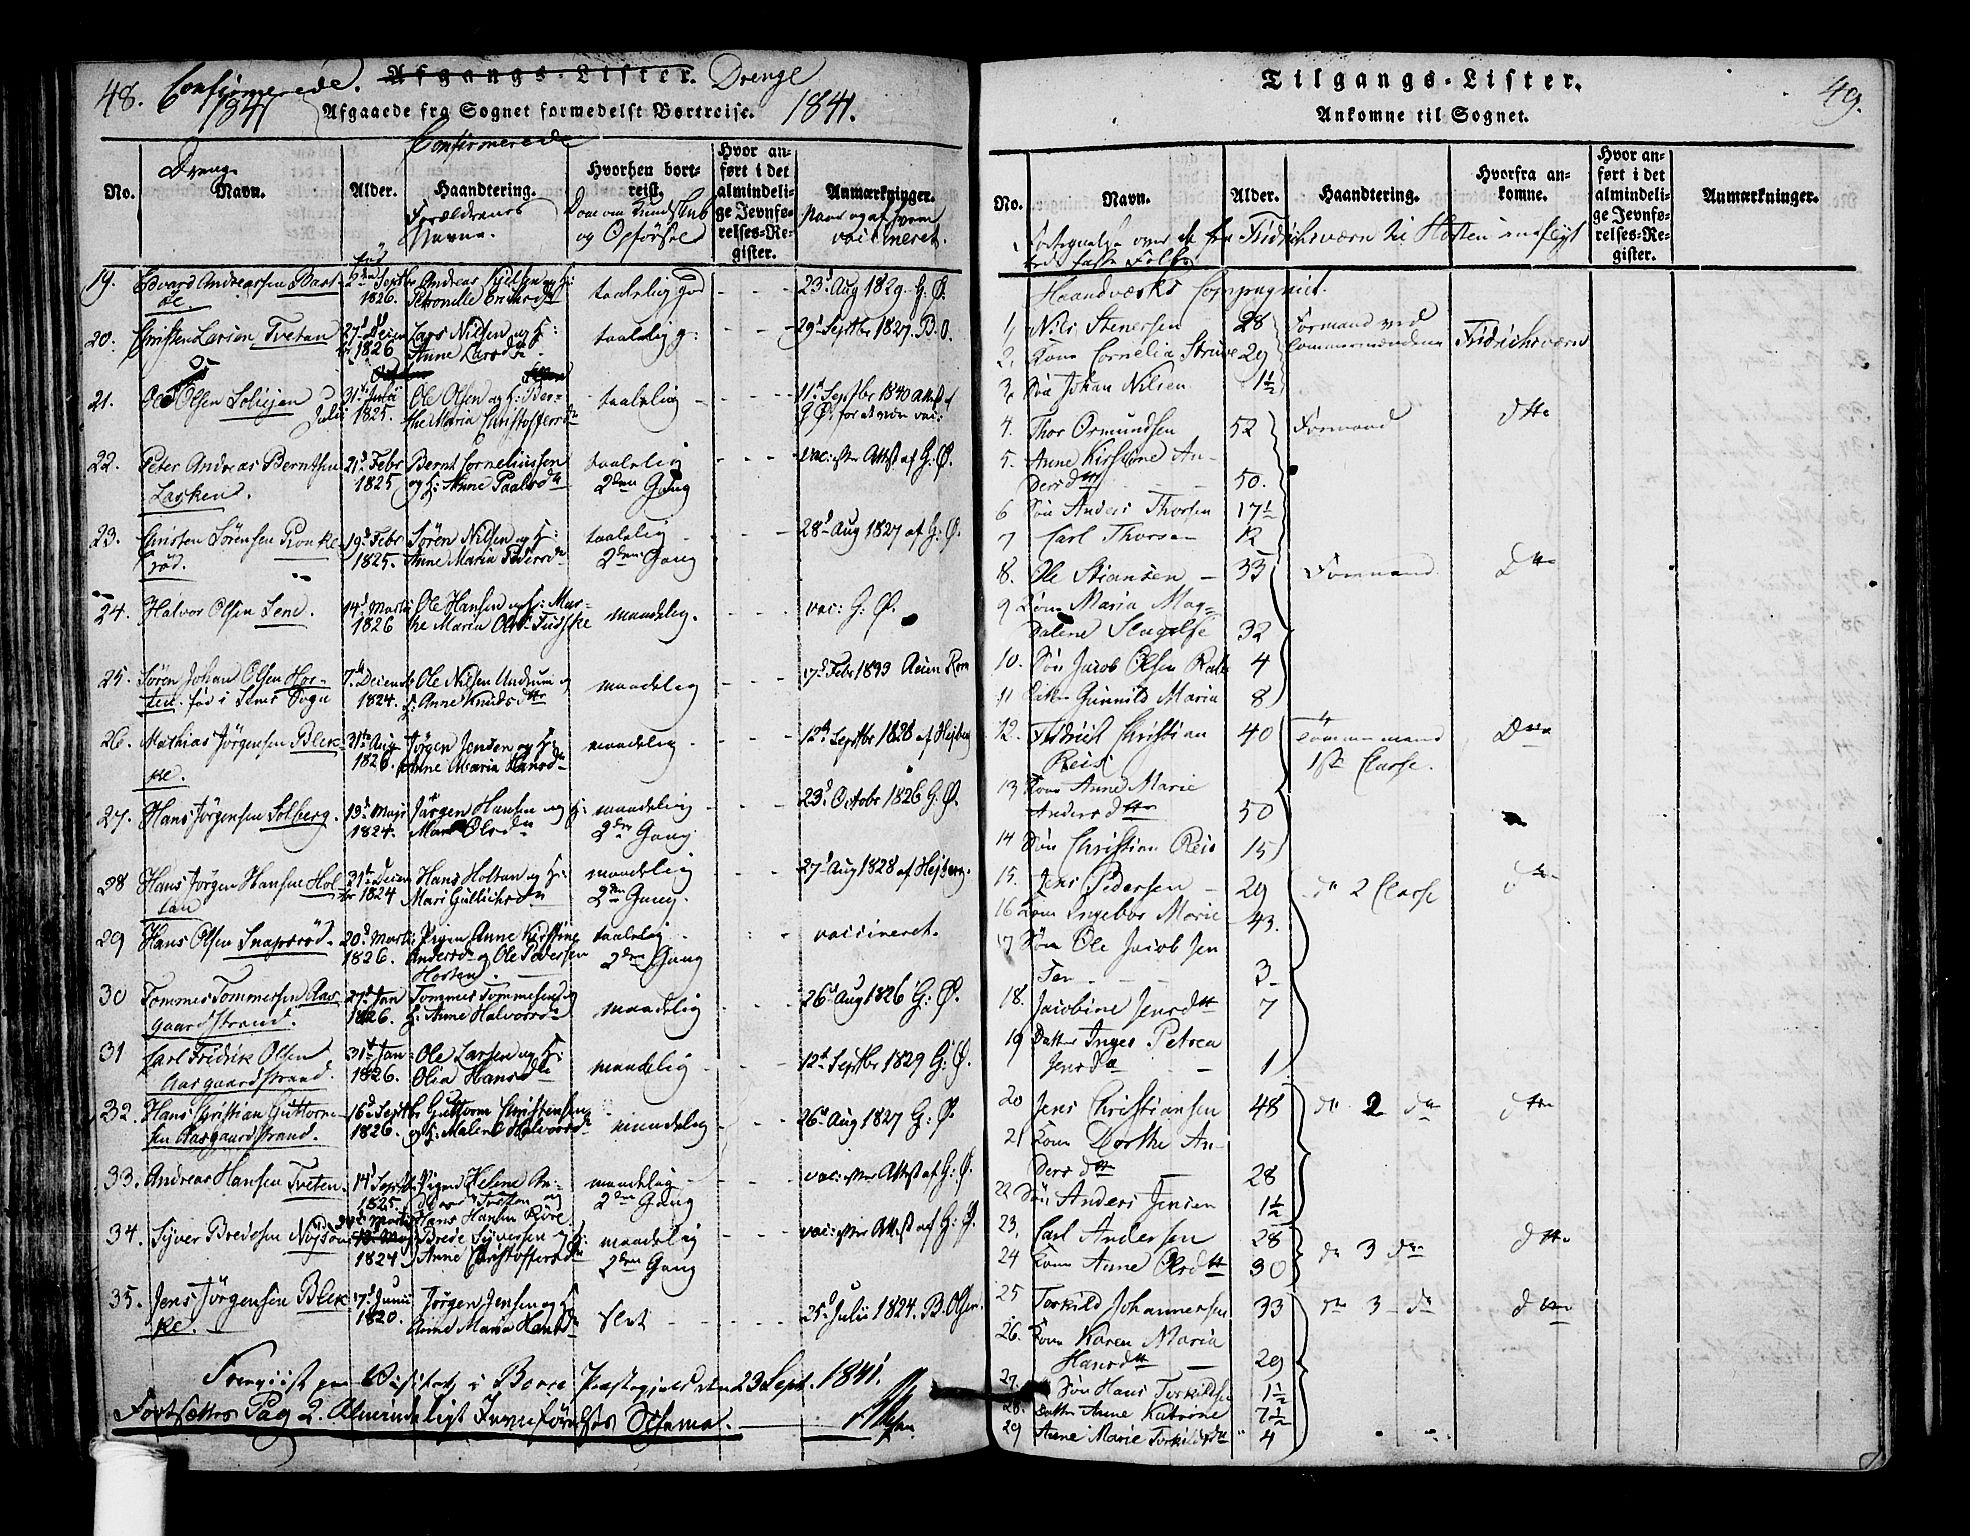 48. Confirmerede. Afgangs-Lister. Drenge
1841 Afgaaede fra Sognet formedelst Bortreise. 1841.
Confirmerede
No. Drenge Navn. Alder. Haandtering. Hvorhen bortreist. Hvor anført i det almindelige Jevnførelses-Register. Anmærkninger.
Forældrenes Navne. Dom om Kundskab og Opførsel Naar og af hvem vaccineret.
19. Edvard Andreassen 1826. Andreas taalelig god 23d Aug 1829. G. Ø.
20. Christen Larsen Tveten 27d 1826 Lars Nilsen og H: Anne Larsdtr taalelig g: 29d Septbr 1827. B. O.
21. Ole Olsen Soleijen 31te Julii 1825. Ole Olsen og H: Berthe Maria Christoffersdtr taalelig 11te Septbr 1840
22. Peter Andreas Berntsen Lasken. 21d Febr 1825 Bernt Corneliussen og H: Anne Paalsdtr taalelig 2den Gang vac: efter Attest af G: Ø.
23. Christen Sörensen Ronkeröd. 19d Febr 1825. Sören Nilsen og H: Anne Maria Pedersdtr taalelig 2den Gang 28d Aug 1827 af G: Ø.
24. Halvor Olsen Lene. 14d Marts 1826 Ole Hansen og H: Marthe Maria maadelig. vac: G: Ø.
25. Sören Johan Olsen Horten. fød i Lenes Sogn 7de 1824. Ole Nilsen Undrum og H: Anne Knudsdtr maadelig
26. Mathias Jörgensen Blekke. 31te Aug 1826. Jörgen Jensen og H: Anne Maria Hansdtr maadelig 12te Septbr 1828 af Hejberg
27. Hans Jörgensen Solberg. 13d Maji 1824. Jörgen Hansen og H: Mari Olsdtr maadelig 2den Gang. 23d Octobr 1826 G: Ø.
28 Hans Jörgen Hansen Holtan 31te 1824 Hans Holtan og H: Mari Gulliksdtr maadelig 2den Gang. 27d Aug 1828 af Hejberg.
29 Hans Olsen Snapsröd. 20d Marts 1826. Pigen Anne Kirstine Andersdtr og Ole Pedersen Horten. taalelig 2den Gang vaccineret.
30 Tommes Tommesen Aasgaardstrand. 27d Jan 1826. Tommes Tommesen og H: Anne Halvorsdtr maadelig 26d Aug 1826 G: Ø.
31 Carl Fridrik Olsen Aasgaardstrand. 31te Jan 1826. Ole Larsen og H: Olia Hansdtr maadelig 12te Septbr 1829 G: Ø.
32. Hans Christian Guttormsen Aasgaardstrand. 16d Septbr 1826. Guttorm Christensen og H: Malene Halvorsdtr maadelig 26d Aug 1827 G: Ø.
33. Andreas Hansen Tveten. 14d Septbr 1825. Pigen Helene Tveten og Hans Hansen Röre. maadelig 2den Gang vac: efter Attest af G: Ø.
34. Syver Bredesen 1824. Brede Syversen og H: Anne Christoffersdtr maadelig 2den Gang vac: efter Attest af G: Ø.
35. Jens Jörgensen Blekke. 17d Junii 1820. Jörgen Jensen og H: Anne Maria Hansdtr slet 25d Julii 1824. B. Olsen.
Fremviist paa Visitats i Borre Præstegjeld den 23 Sept. 1841.
Fortsættes Pag 2. Almindeligt Jevnførelses Schema.
Tilgangs-Lister. 49.
Ankomne til Sognet.
No. Navn. Alder. Haandtering. Hvorfra ankomne. Hvor anført i det almindelige Jevnførelses-Register. Anmærkninger.
Fortegnelse over de fra Fridrichsværn til Horten indflyttede faste Folk
Haandværks Compagniet.
1, Nils Stenersen 28 Formand ved Tømmermændene Fridrichsværn
2, Kone Cornelia Struve 29
3, Søn Johan Nilsen 1½
4. Thor Ormundsen 52 Formand dtto
5. Anne Kirstine Andersdtr 50.
6 Søn Anders Thorsen 17½
7 Carl Thorsen 12
8. Ole Stiansen 33 Formand dtto
9 Kone Maria Magdalene 32
10. Søn Jacob Olsen 4
11 Gunnild Maria 8
12. Fridrich Christian Reis 40 Tømmermand 1ste Classe. dtto
13 Kone Anne Marie Andersdtr 50
14 Søn Christian Reis 15
15. Jens Pedersen 29 do 2 Classe dtto
16 Kone Ingebor Marie 43.
17 Søn Ole Jacob Jensen 3
18. Jacobine Jensdtr 7
19 Datter Inger Petrea Jensda 1
20 Jens Christiansen 48 do 2 do dtto
21 Kone Dorthe Andersdtr 28
22 Søn Anders Jensen 1½
23. Carl Andersen 28 do 3 do dtto
24 Kone Anne Olsdtr 30
25 Torkild Johannessen 33 do 3 do dtto
26. Kone Karen Maria Hansdtr 29
27. Søn Hans Torkildsen 1½
28. Datter Anne Katrine 7½
29 Anne Marie Torkildsdtr 4